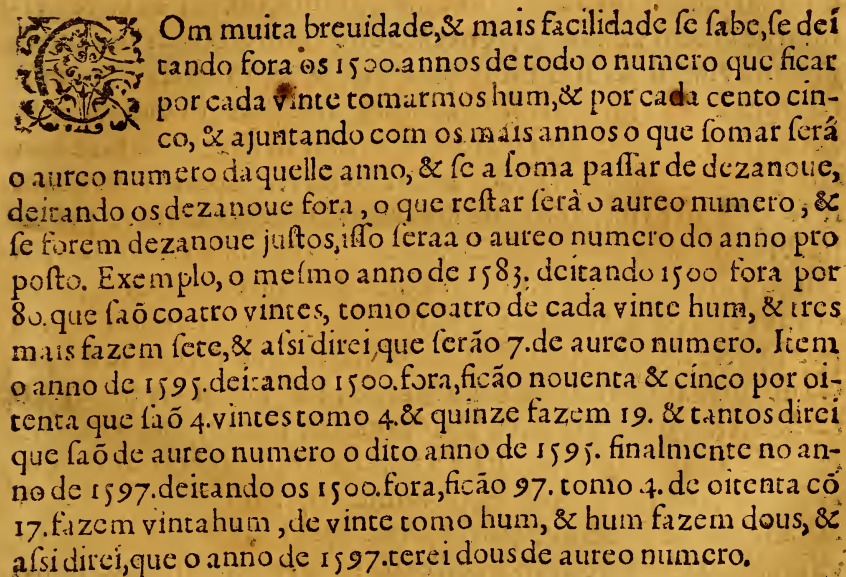 COm muita breuidade,& mais facilidade ſe ſabe,ſe deí
tando fora os 1500.annos de todo o numero que ficar
por cada vinte tomarmos hum,& por cada cento cin-
co, & ajuntando com os mais annos o que ſomar ſerá
o aureo numero daquelle anno, & ſe a ſoma paſſar de dezanoue,
deitando os dezanoue fora , o que reſtar ſerà o aureo numero , &
ſe forem dezanoue juſtos,iſſo ſeraa o aureo numero do anno pro
poſto. Exemplo, o meſmo anno de 1583. deitando 1500 fora por
80.que ſaõ coatro vintes, tomo coatro de cada vinte hum, & tres
mais fazem ſete,& aſsi direi,que ſerão 7.de aureo numero. Item
o anno de 1595.deitando 1500.fora,ficão nouenta & cinco por oi-
tenta que ſaõ 4.vintes tomo 4.& quinze fazem 19. & tantos direi
que ſaõ de aureo numero o dito anno de 1595. finalmente no an-
no de 1597.deitando os 1500.fora,ficão 97. tomo 4. de oitenta cõ
17.fazem vintahum ,de vinte tomo hum, & hum fazem dous, &
aſsi direi,que o anno de 1597.terei dous de aureo numero.